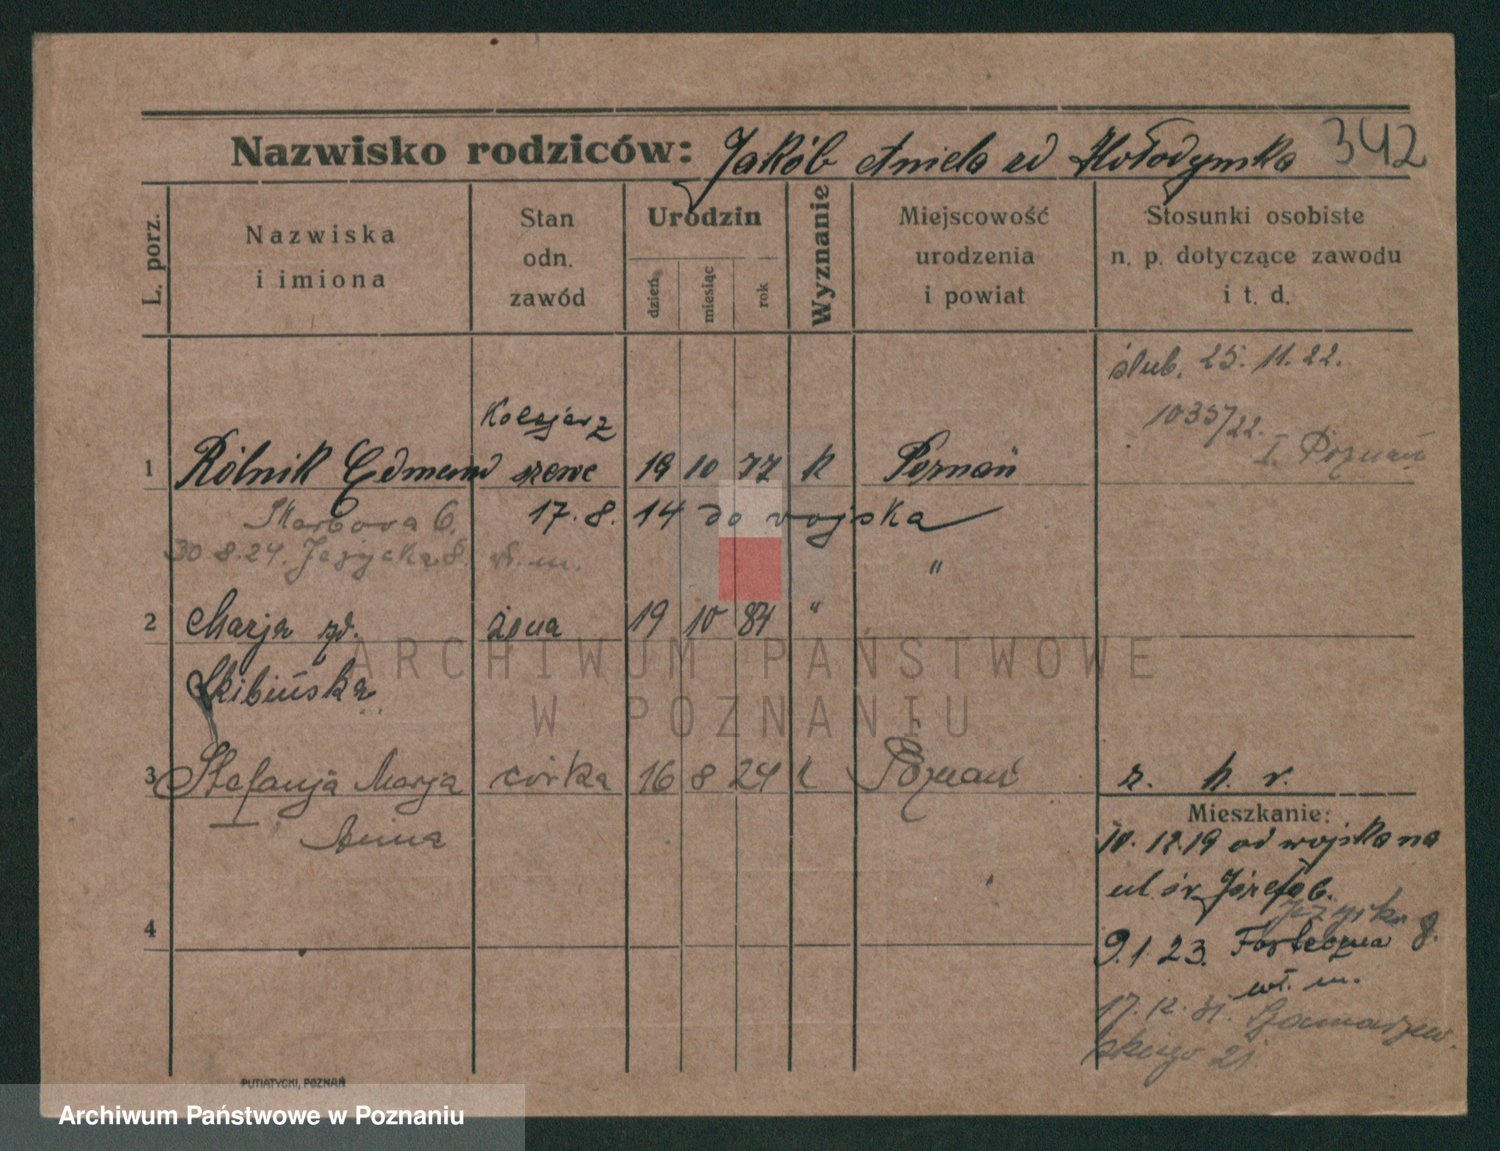 342
Nazwisko rodziców: Jakób Aniela zd Hołodynska
L. porz.
Nazwiska
i imiona
Stan
odn.
zawód
Urodzin
dzień
miesiąc
rok
Wyznanie
Miejscowość
urodzenia
i powiat
Stosunki osobiste
n. p. dotyczące zawodu
i t. d.
ślub. 25. 11. 22.
1035/22.
I. Poznań
Kolejarz
1 Rólnik Edmund szewc 19 10 77 k Poznań
17. 8. 14 do wojska
30 8. 24. Jeżycka 8. wł. m.
"
2 Marja zd. żona 19 10 84 "
Skibińska
3 Stefanja Marja córka 16 8 24 k Poznań
Anna
z. k. r.
Mieszkanie:
10. 12. 19 od wojska na
ul św. Józefa 6.
Jeżycka 8.
9. 1. 23. Forteczna
wł. m.
17. 12. 31. Szamarzew-
skiego 21.
4
PUTIATYCKI, POZNAŃ
ARCHIWUM PAŃSTWOWE
W POZNANIU
Archiwum Państwowe w Poznaniu